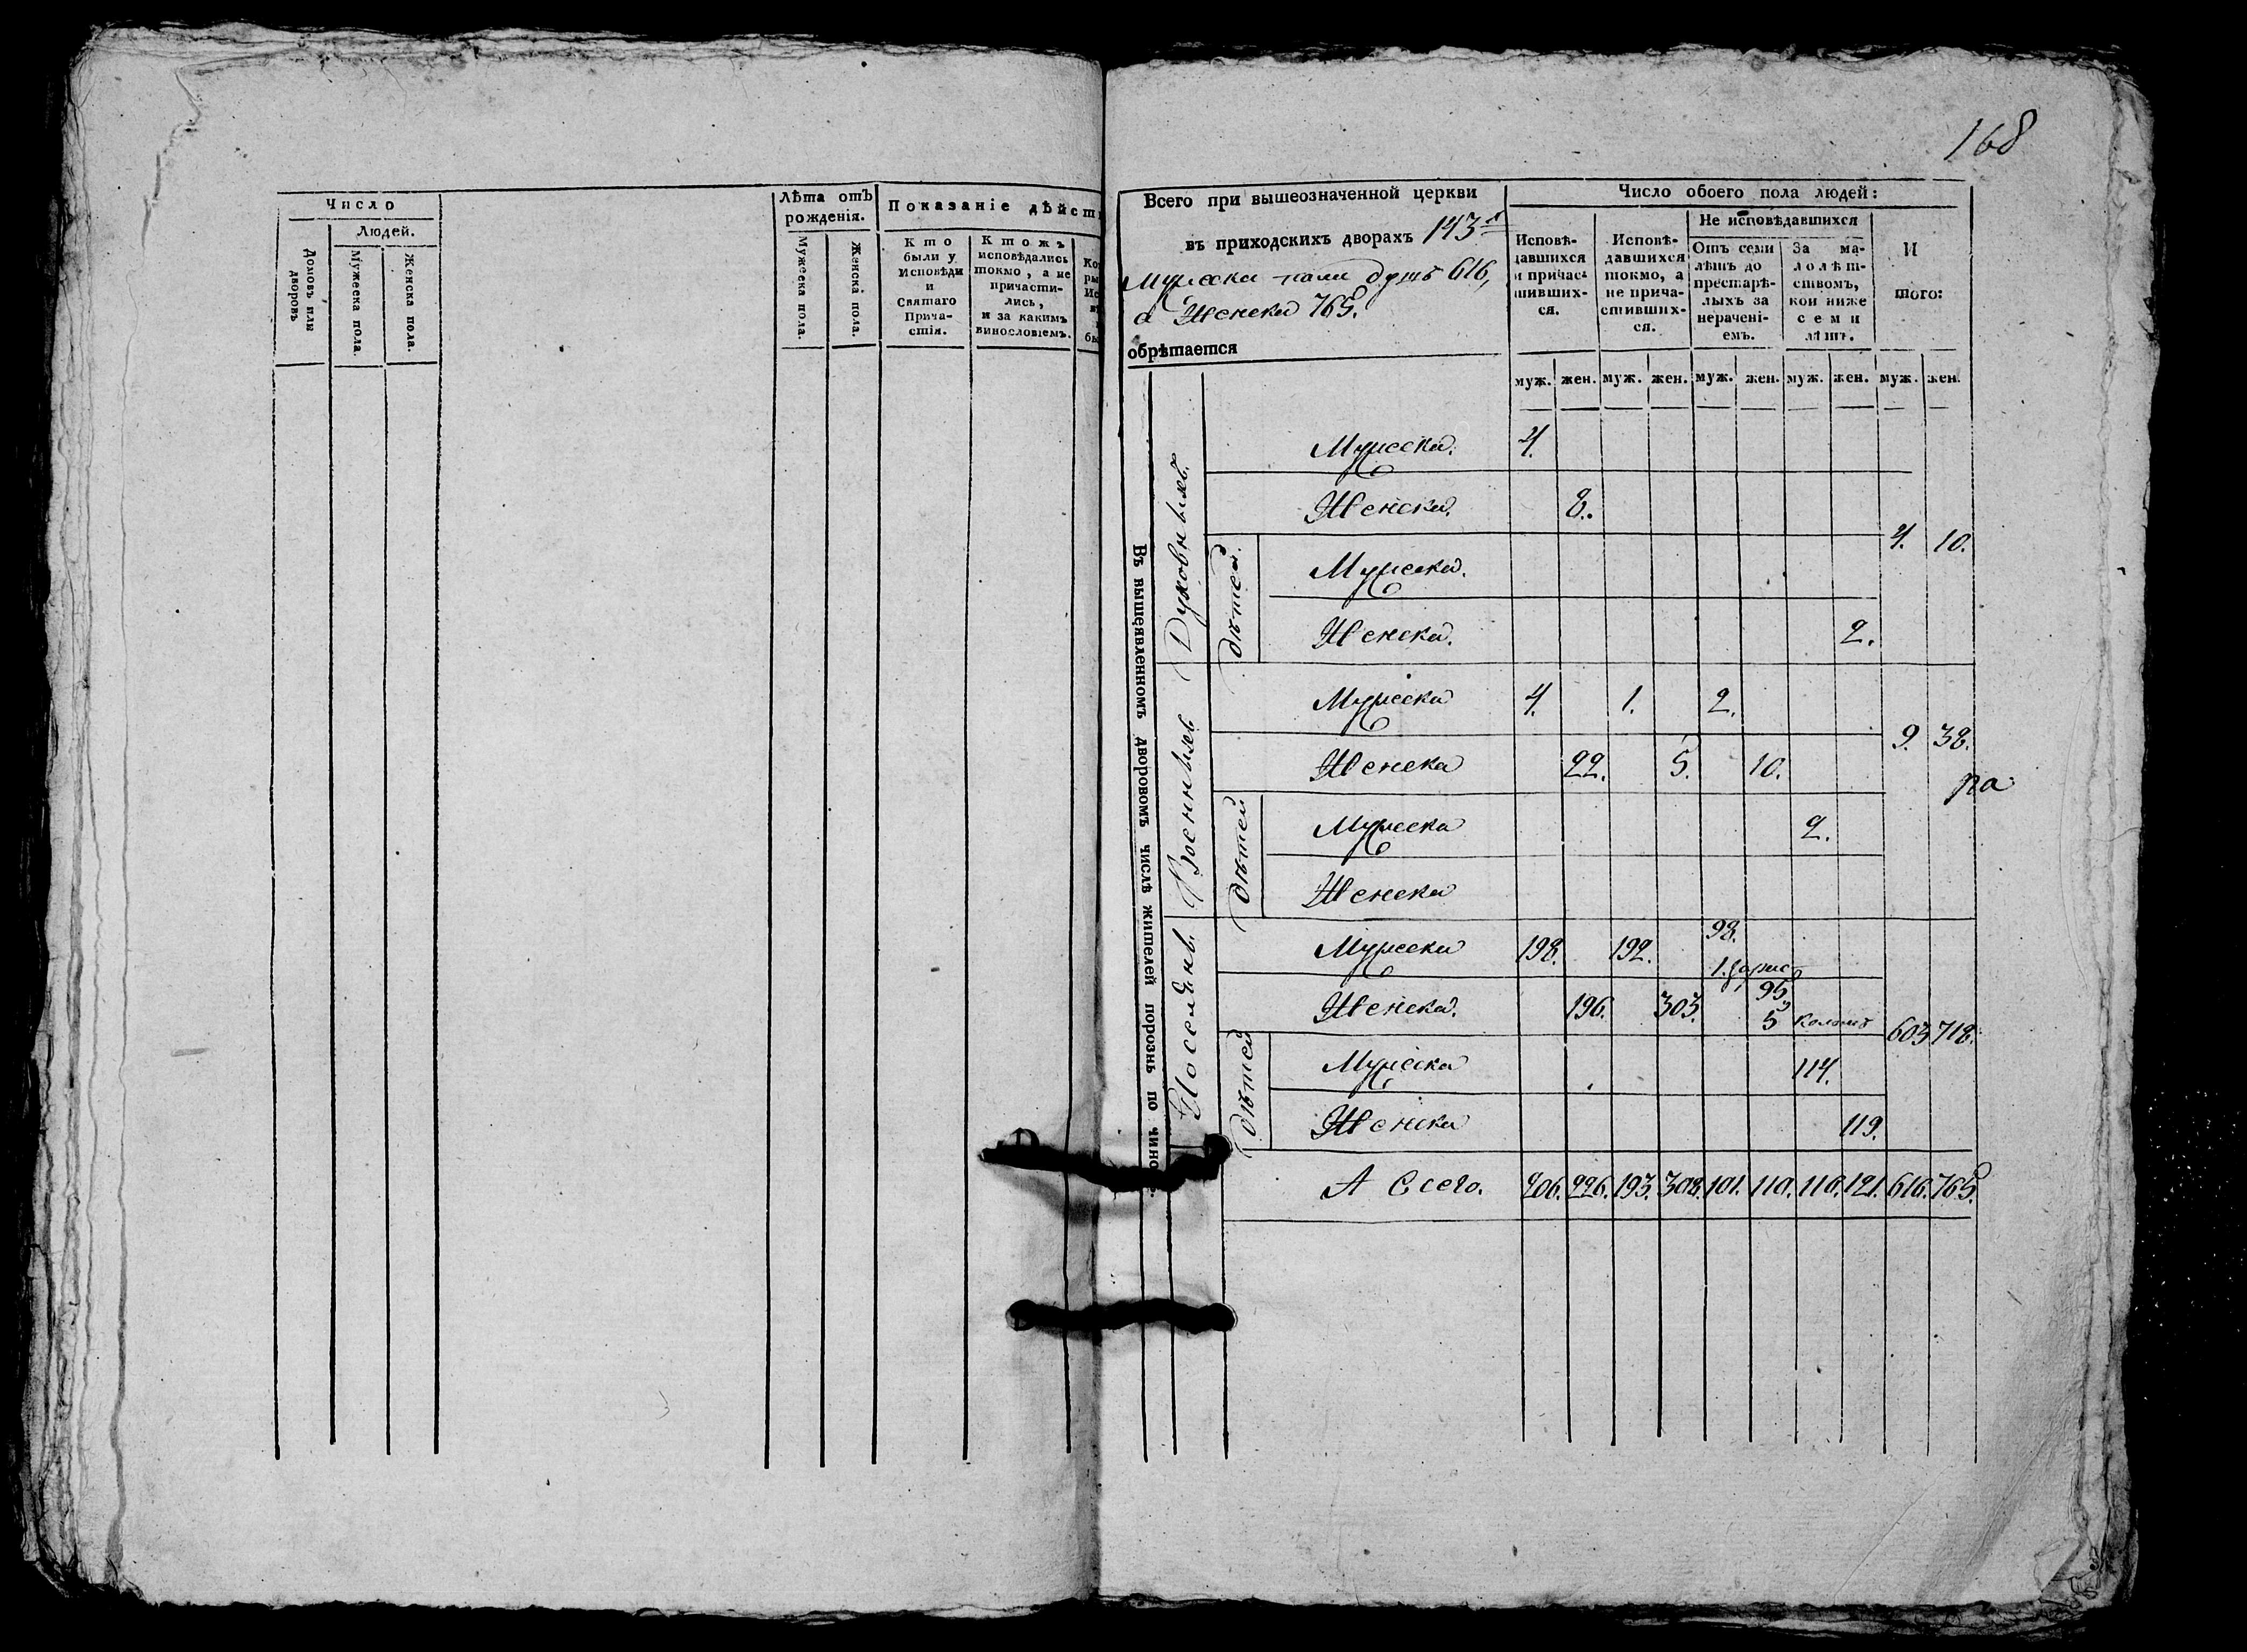 168
Число
Людей.
Домовъ или дворовъ
Мужеска пола.
Женска пола.
Лѣта отъ
рожденія.
Мужеска пола.
Женска пола.
Показаніе дѣйст
Кто
были у
Исповѣди
и
Святаго
Прича-
стія.
Ктожъ
исповѣдались
токмо, а не
причасти-
лись,
и за какимъ
винословіемъ.
Всего при вышеозначенной церкви
въ приходскихъ дворахъ 143
мужеска пола душъ 616,
а женска 765.
обрѣтается
Число обоего пола людей:
Исповѣ-
давшихся
и причас-
шивших-
ся.
Исповѣ-
давшихся
токмо, а
не прича-
стивших-
ся.
Не исповѣдавшихся
Отъ семи
лѣтъ до
престарѣ-
лыхъ за
нерачені-
емъ.
За ма-
лолѣт-
ствомъ,
кои ниже
семи
лѣтъ.
И
того:
муж. жен. муж. жен. муж. жен. муж. жен. муж. жен.
Въ вышеявленномъ дворовомъ числѣ жителей порознь по чино
Духовныхъ.
Мужеска. 4.
Женска. 8.
4. 10.
Дѣтей.
Мужеска.
Женска. 2.
Военныхъ
Мужеска 4. 1. 2.
9. 38.
Женска 22. 5. 10.
ра
Дѣтей
Мужеска 2.
Женска
Поселянъ.
Мужеска 198. 192. 98.
1.
Женска. 196. 303. 95
5
603 718.
Дѣтей
Мужеска 114.
Женска 119.
А всего. 206. 226. 193. 308. 101. 110. 116. 121. 616. 765.